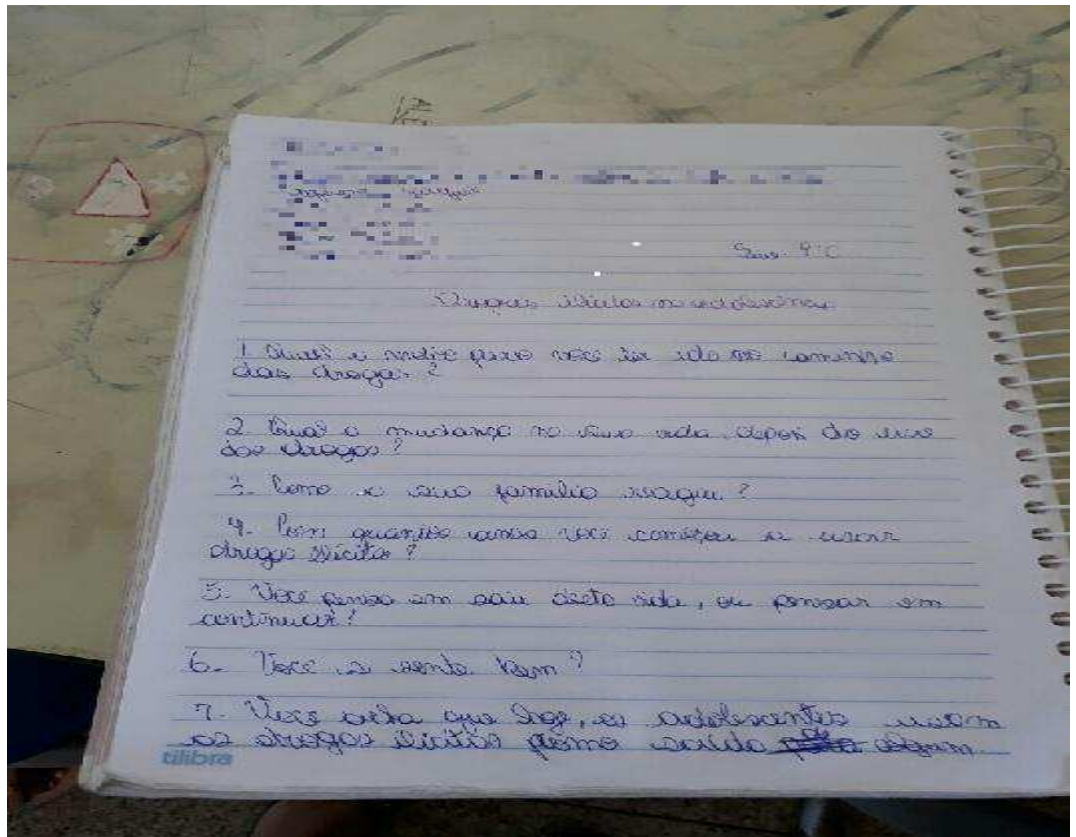 Série 9°C
Drogas ilícitas na adolescência
1. Qual o motivo para você ter ido no caminho
das drogas?
2. Qual a mudança na sua vida depois do uso
das drogas?
3. Como a sua família reagiu?
4. Com quantos anos você começou a usar
drogas ilícitas?
5. Você pensa em sair desta vida, ou pensar em
continuar?
6- Você se sente bem?
7- Você acha que hoje, os adolescentes usam
as drogas ilícitas como saída
tilibra